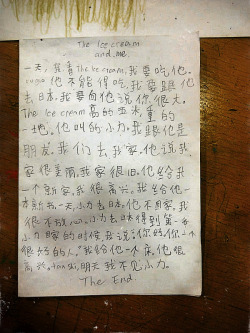 The Ice cream
and me.
一天,我看The Ice cream,我要吃他。
他不能得吃,我要跟他
去日本,我要向他说你很大。
The Ice cream 高的
一地。他叫的小力。我跟他是
朋友。我们去我家,他说我
家很美丽,我家很旧。他给我
一个新家,我很高兴。我给他一
本新书。一天小力去日本,他不回家,我
很不放心。小力去日本得到第一
小力回家的时候,我说:你好,你
很好的人。"我给他一个床,他很
高兴。tan shi,明天我不见小力。
The End.